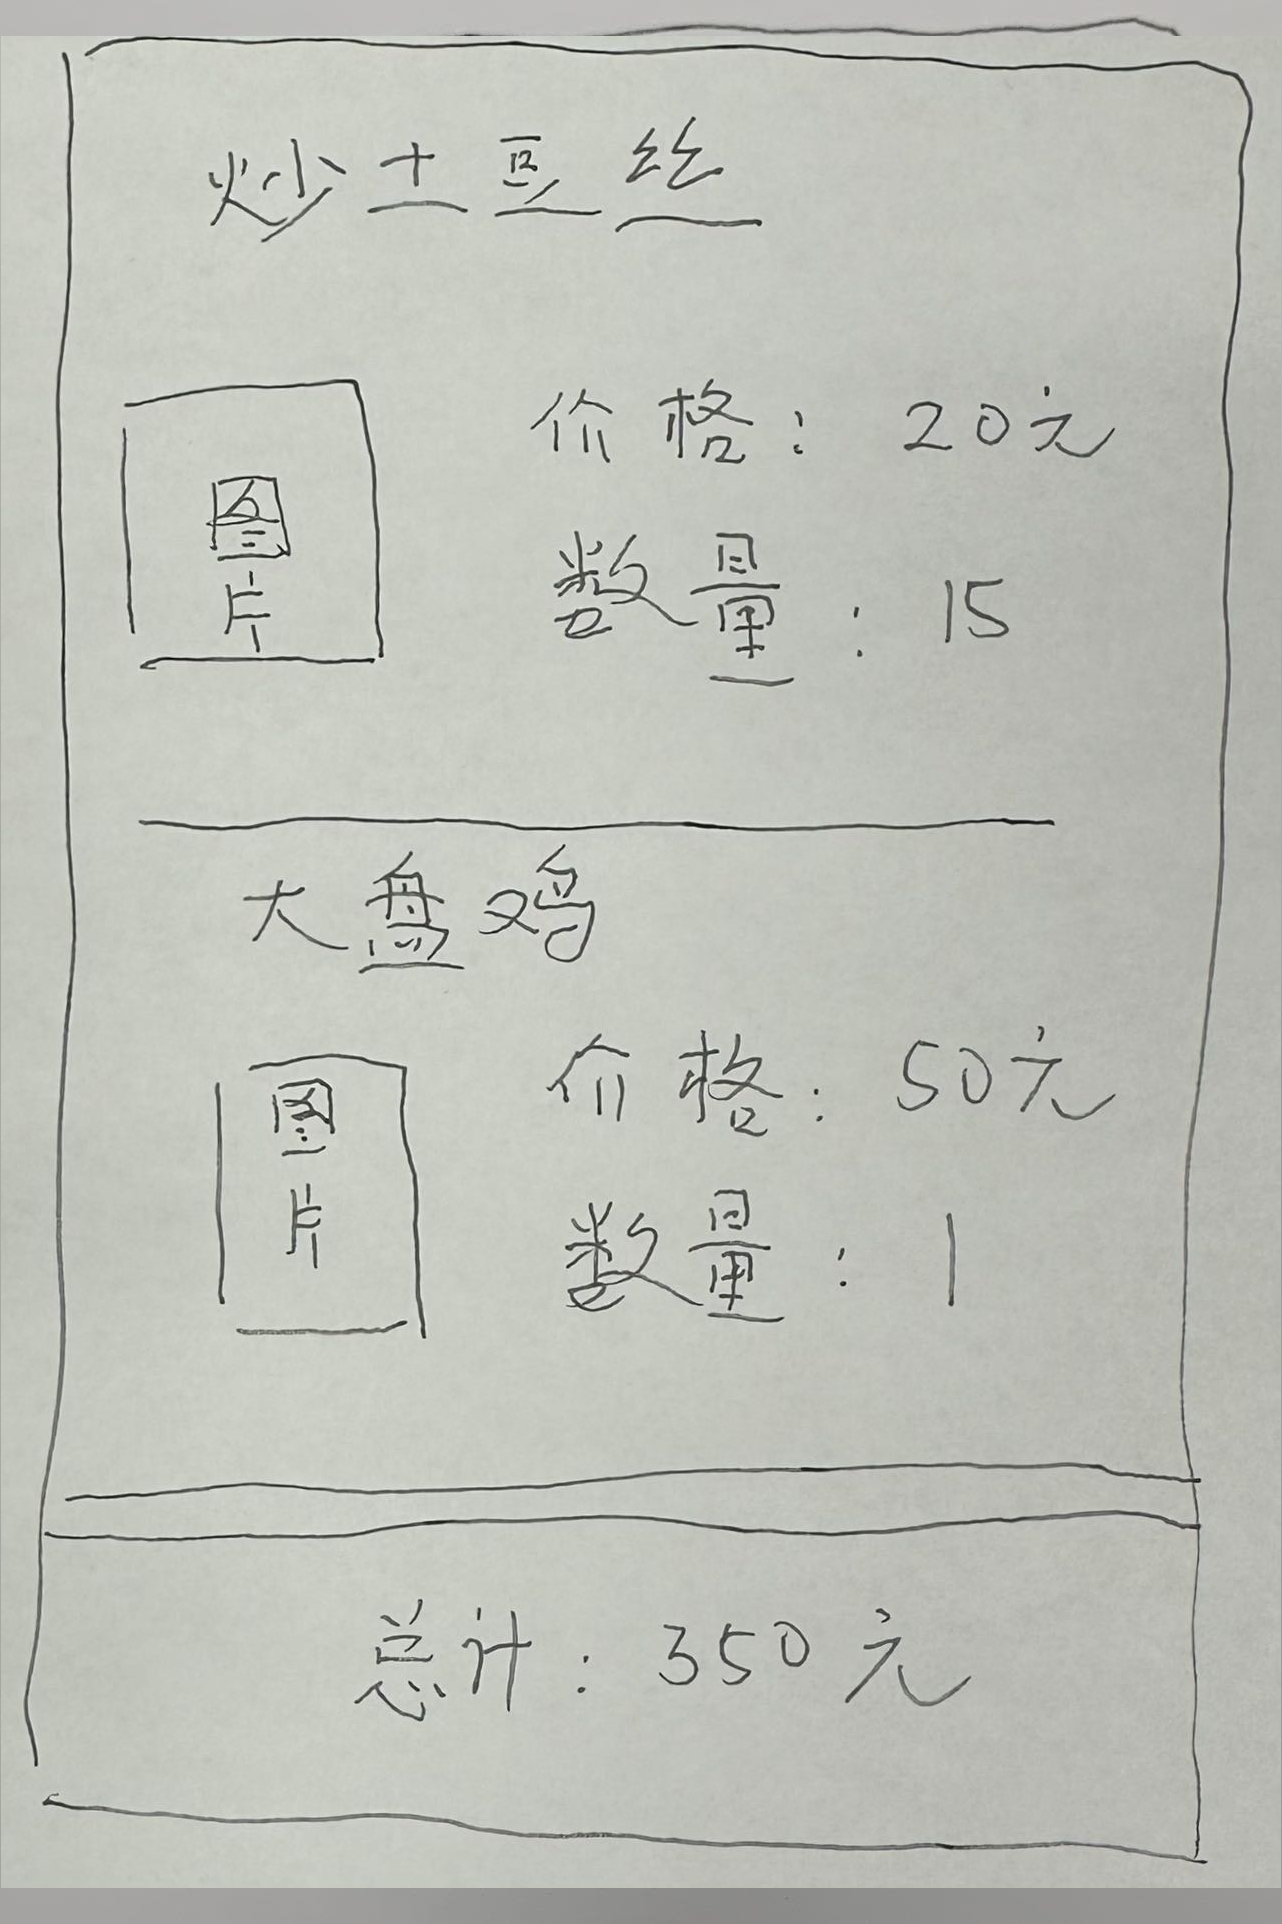 炒土豆丝
图片
价格: 20元
数量: 15
大盘鸡
图片
价格: 50元
数量: 1
总计: 350元